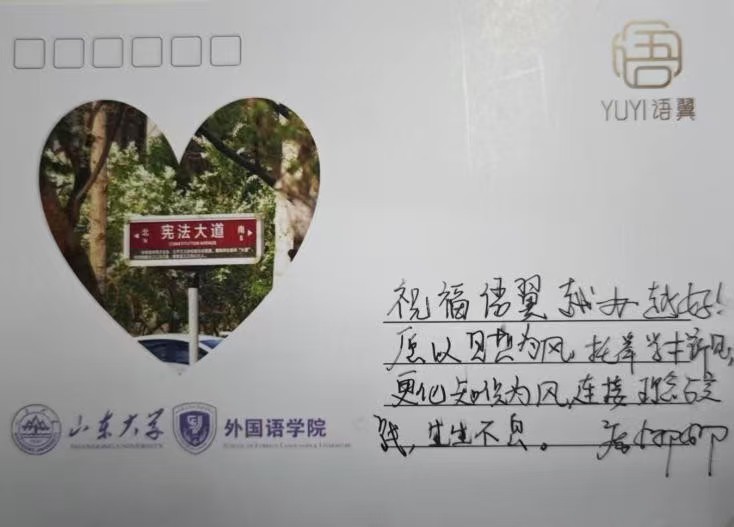 语
YUYI语翼
北 宪法大道 南
CONSTITUTION AVENUE
祝福语翼越办越好!
愿以思想为风,托举学术新见,
更化知识为风,连接理论与实
践,生生不息。
山东大学 外国语学院
SHANDONG UNIVERSITY